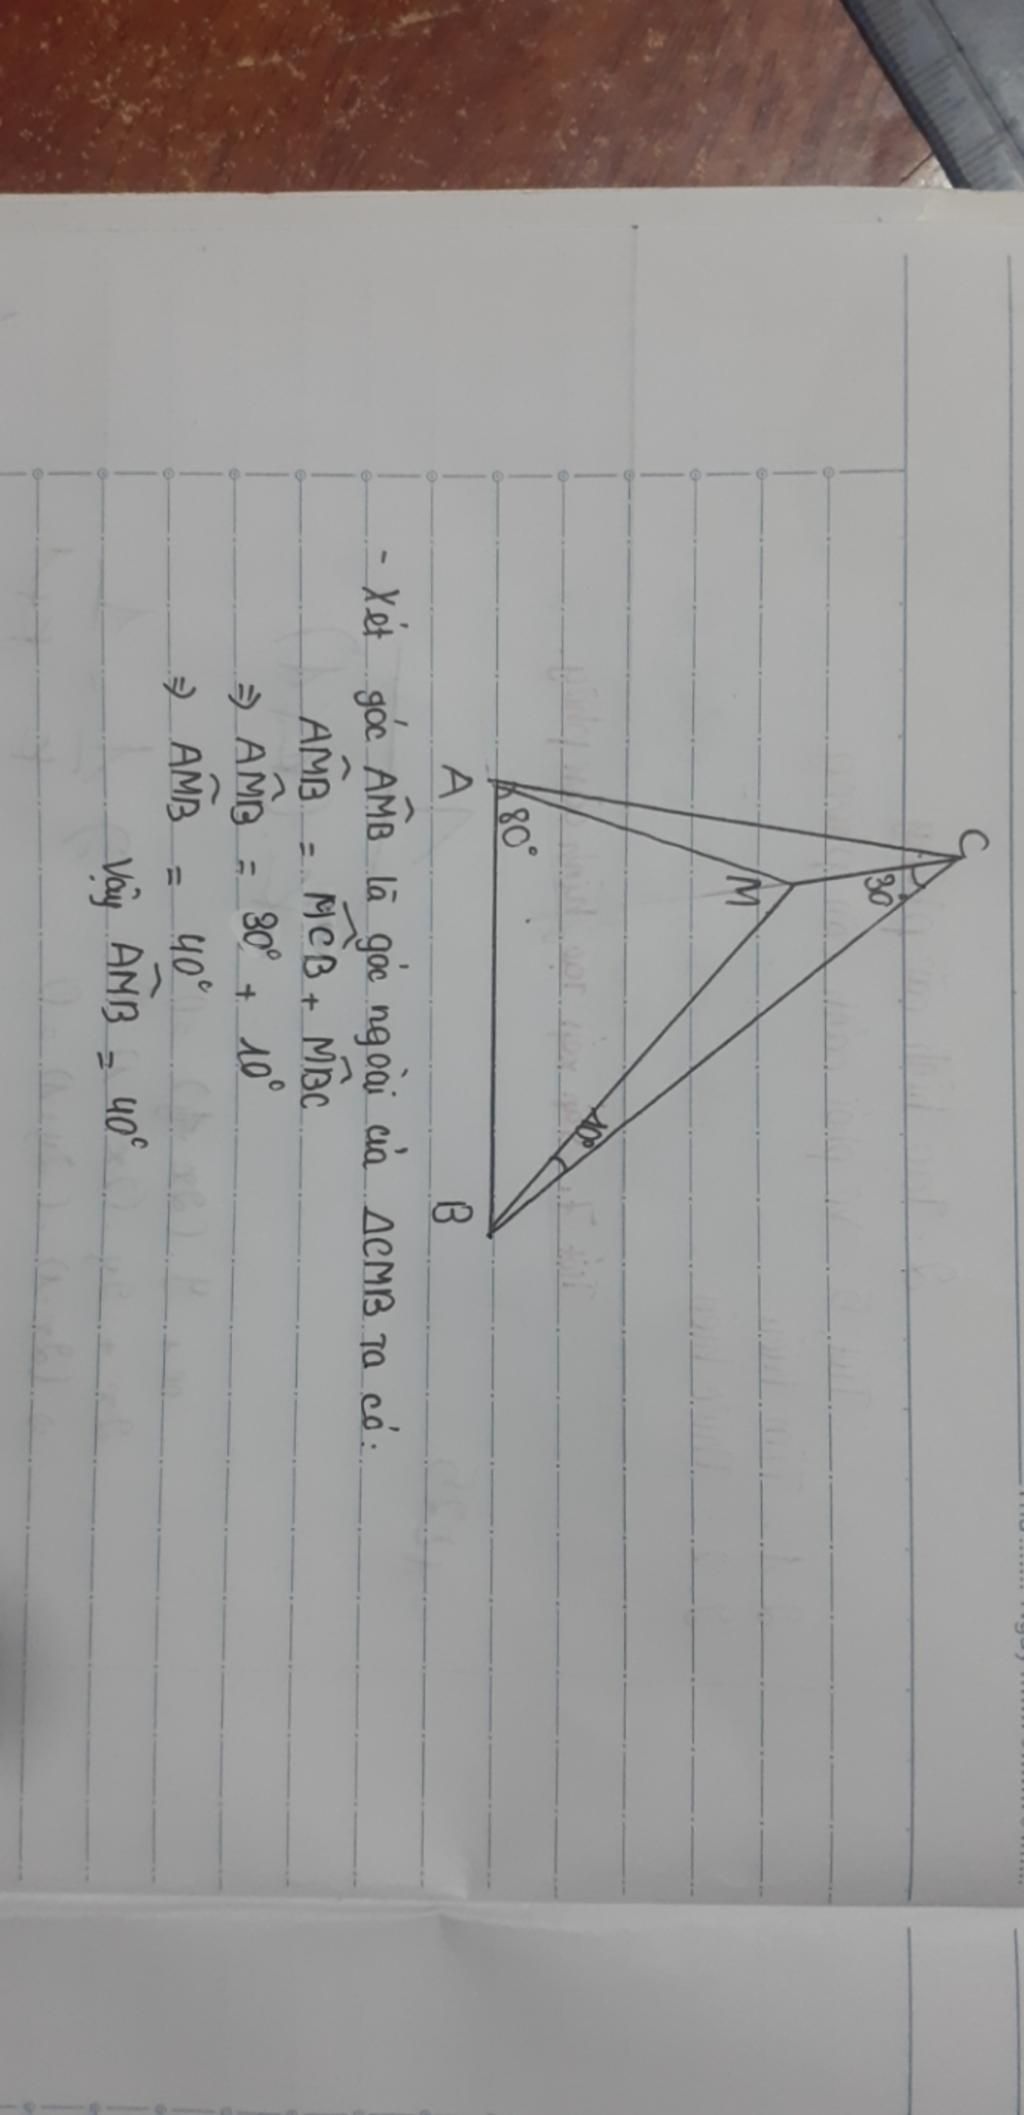 C
30°
M
80°
10°
A
B
- Xét góc AM̂B là góc ngoài của ΔCMB ta có:
AM̂B = MĈB + MB̂C
⇒ AM̂B = 30° + 10°
⇒ AM̂B = 40°
Vậy AM̂B = 40°